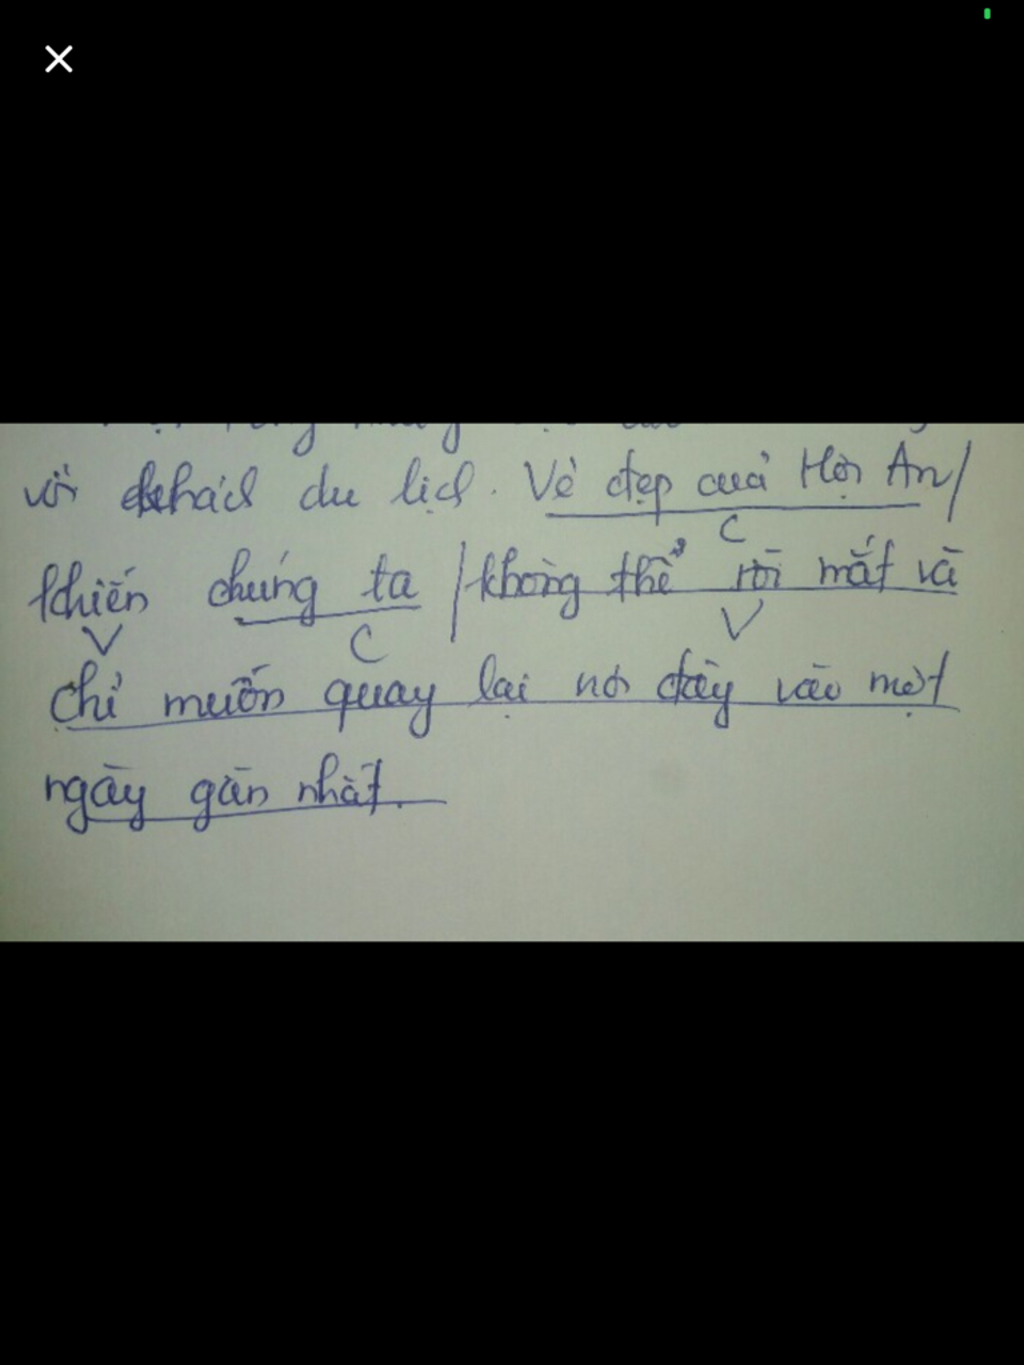 với khách du lịch. Vẻ đẹp của Hội An/
C
khiến chúng ta / không thể rời mắt và
V C V
chỉ muốn quay lại nơi đây vào một
ngày gần nhất.